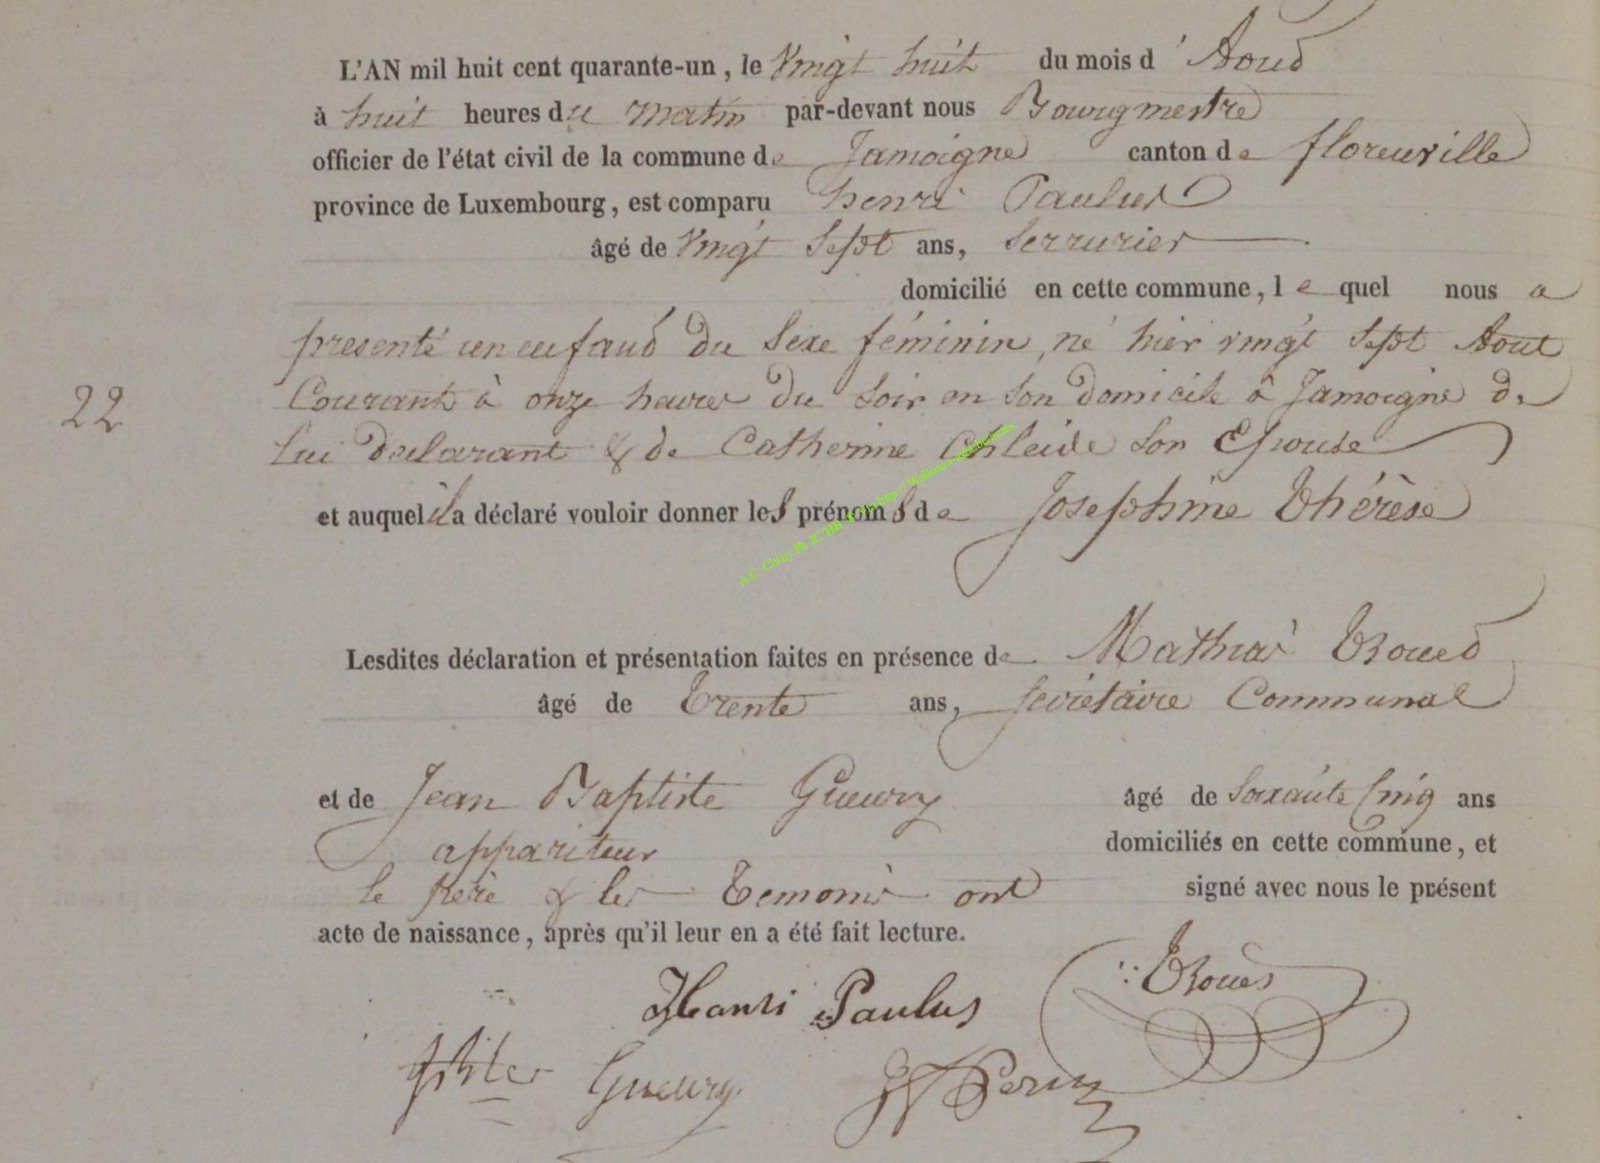 L'AN mil huit cent quarante-un, le Vingt huit du mois d' Aout
à huit heures du matin par-devant nous Bourgmestre
officier de l'état civil de la commune de Jamoigne canton de florenville
province de Luxembourg, est comparu henri Paulus
âgé de Vingt Sept ans, Serrurier
domicilié en cette commune, le quel nous a
presenté un enfant du Sexe féminin, né hier vingt Sept Aout
22
Courant à onze heures du Soir en Son domicile à Jamoigne de
Lui declarant & de Catherine Son Epouse
et auquel il a déclaré vouloir donner leS prénomS de Josephine Thérèse
Lesdites déclaration et présentation faites en présence de Mathias
âgé de Trente ans, Secrétaire Communal
et de Jean Baptiste Gueury âgé de Soixante Cinq ans
appariteur domiciliés en cette commune, et
le père & les Temoins ont signé avec nous le présent
acte de naissance, après qu'il leur en a été fait lecture.
Hanri Paulus
Gueury